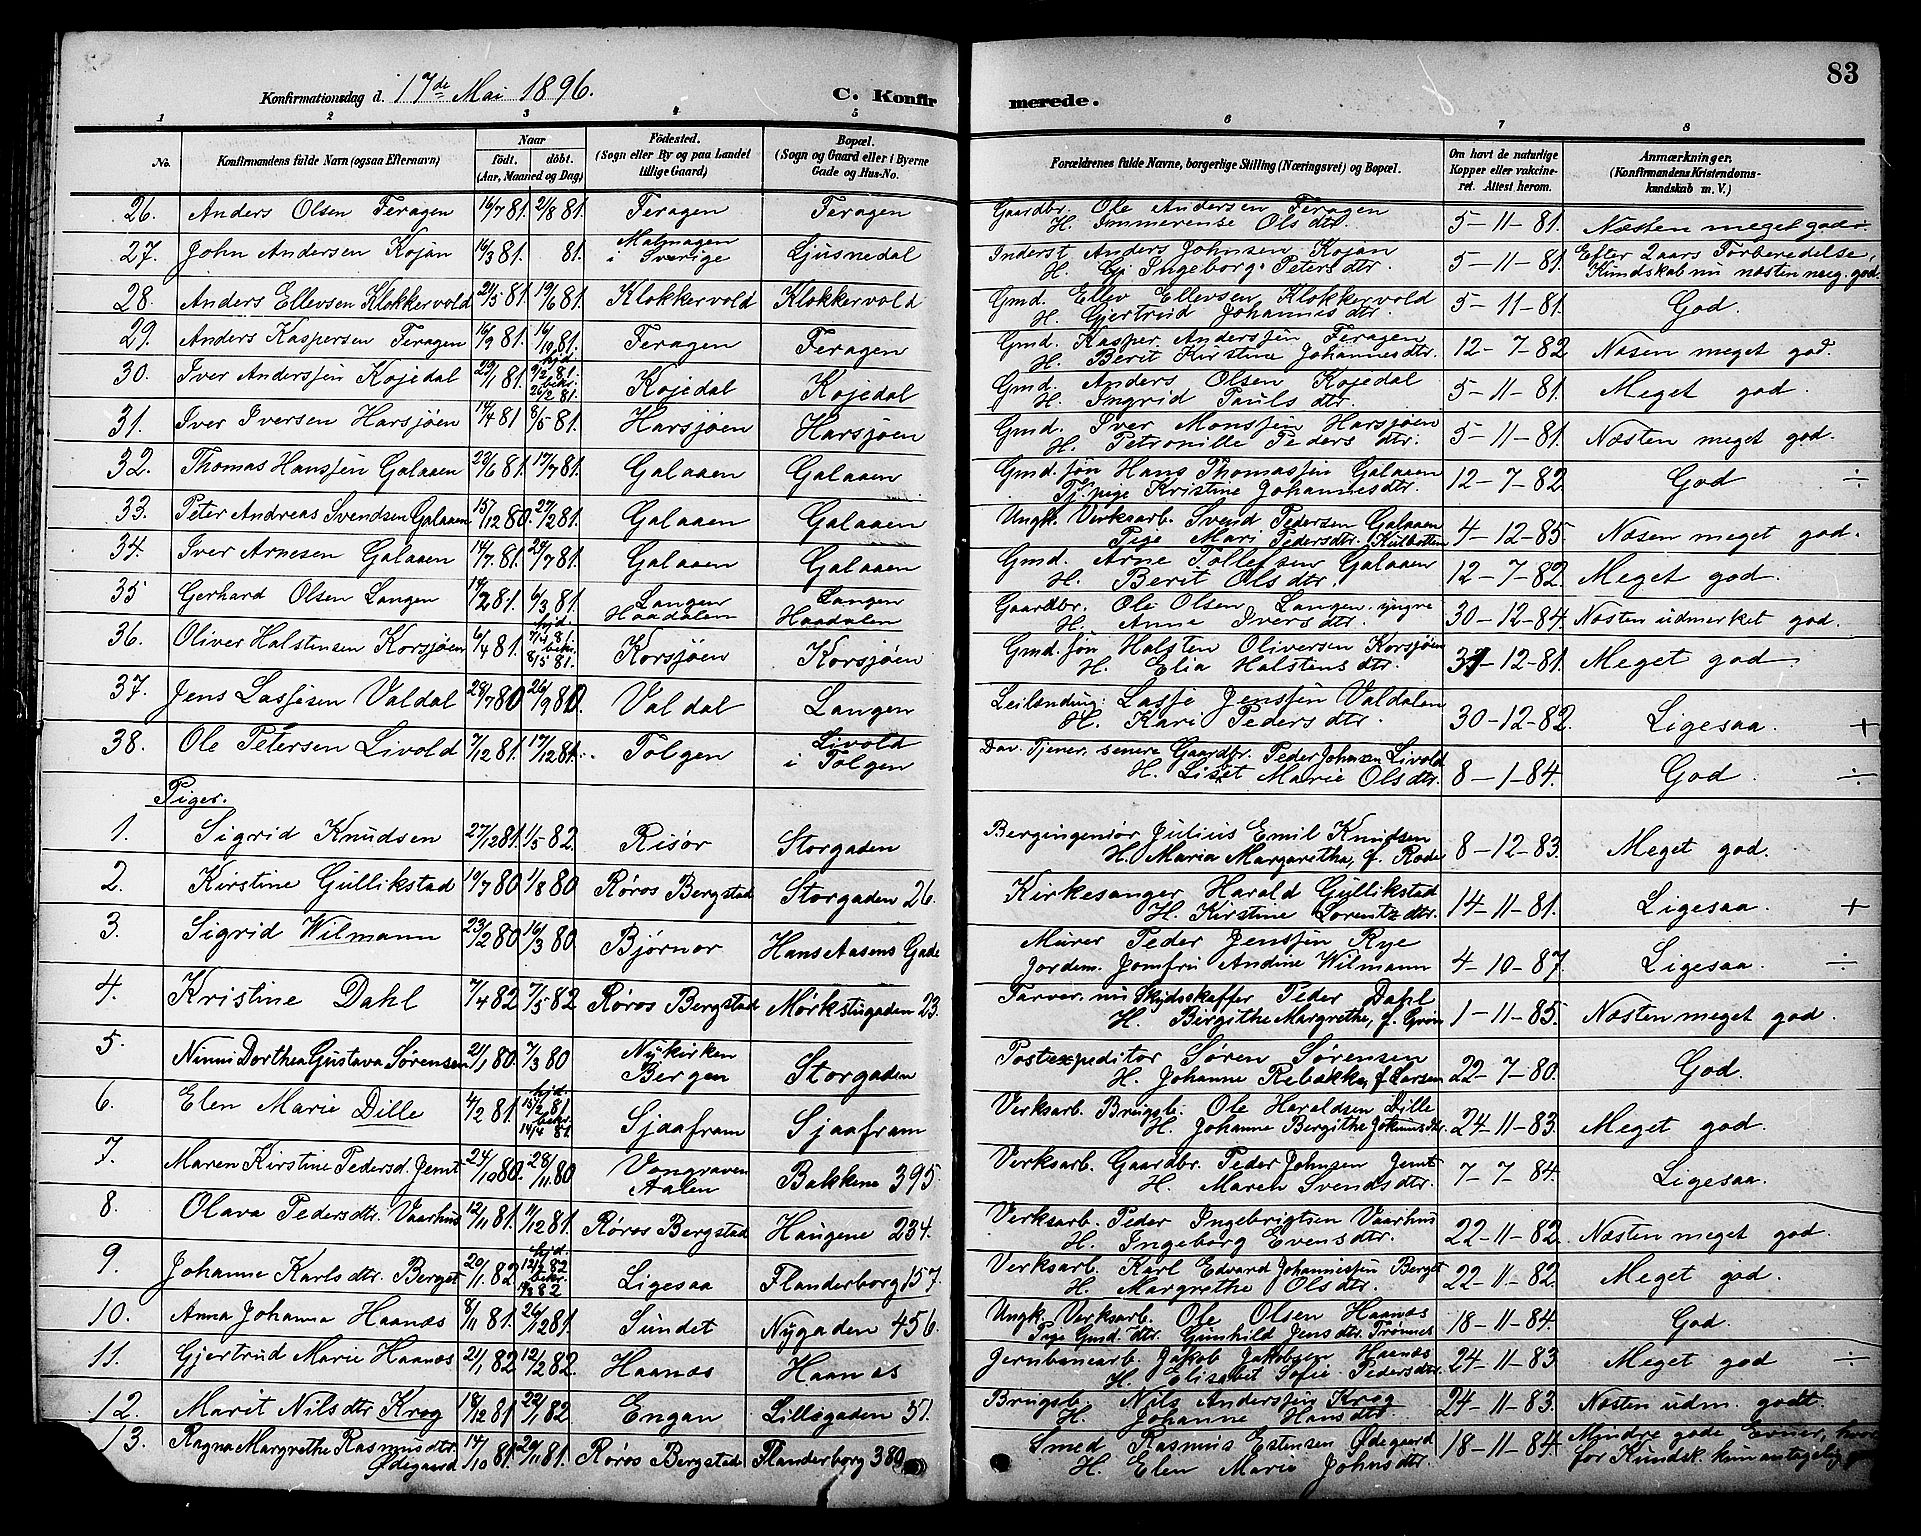 83
Konfirmationsdag d. 17de Mai 1896. C. Konfirmerede.
1 2 3 4 5 6 7 8
No. Konfirmandens fulde Navn (ogsaa Efternavn) Naar født, døbt. (Aar, Maaned og Dag) Fødested. (Sogn eller By og paa Landet tillige Gaard) Bopæl. (Sogn og Gaard eller i Byerne Gade og Hus-No. Forældrenes fulde Navne, borgerlige Stilling (Næringsvei) og Bopæl. Om havt de naturlige Kopper eller vakcineret. Attest herom. Anmærkninger. (Konfirmandens Kristendomskundskab m. V.)
26. Anders Olsen Feragen 16/7 81. 2/8 81. Feragen Feragen Gaardbr. Ole Andersen Feragen
H. Immerense Olsdtr. 5-11-81. Næsten meget god.
27. John Andersen Kojan 16/3 81. 81. Malmagen i Sverige Ljusnedal Inderst Anders Johnsen Kojan
H. Gj. Ingeborg Petersdtr. 5-11-81. Efter 2 aars Forberedelse, Kundskab nu næsten meg. god.
28. Anders Ellevsen Klokkervold 21/5 81. 19/6 81. Klokkervold Klokkervold Gmd. Ellev Ellevsen Klokkervold
H. Gjertrud Johannesdtr. 5-11-81. God.
29. Anders Kaspersen Feragen 16/9 81. 16/10 81. Feragen Feragen Gmd. Kasper Anderssen Feragen
H. Berit Kirstine Johannesdtr. 12-7-82 Næsen meget god.
30. Iver Anderssen Kojedal 29/1 81. hjd. 9/2 81. bekr. 26/2 81. Kojedal Kojedal Gmd. Anders Olsen Kojedal
H. Ingrid Paulsdtr. 5-11-81. Meget god
31. Iver Iversen Harsjøen 14/4 81 8/5 81. Harsjøen Harsjøen Gmd. Iver Monssen Harsjøen
H. Petronille Pedersdtr. 5-11-81. Næsten meget god.
32. Thomas Hanssen Galaaen 29/6 81. 17/7 81. Galaaen Galaaen Gmd. søn Hans Thomassen Galaaen
Tj. pige Kristine Johannesdtr. 12-7-82 God ÷
33. Peter Andreas Svendsen Galaaen 15/12 80. 27/2 81. Galaaen Galaaen Ungk. Verksarb. Svend Pedersen Galaaen
Pige Mari Pedersdtr. Kulbotten 4-12-85. Næsen meget god.
34. Iver Arnesen Galaaen 14/7 81. 29/7 81. Galaaen Galaaen Gmd. Arne Tollefsen Galaaen
H. Berit Olsdtr. 12-7-82. Meget god.
35 Gerhard Olsen Langen 14/2 81. 6/3 81. Langen Haadalen Langen Haadalen Gaardbr. Ole Olsen Langen yngre
H. Anne Iversdtr. 30-12-84. Næsten udmerket god.
36. Oliver Halstensen Korsjøen 6/4 81. hjd. 7/4 81. bekr. 8/5 81. Korsjøen Korsjøen Gmd. søn Halsten Oliversen Korsjøen
H. Elia Halstensdtr. 31-12-81. Meget god
37. Jens Lassesen Valdal 28/7 80 26/9 80. Valdal Langen Leilending Lasse Jenssen Valdalen
H. Kari Pedersdtr. 30-12-82. Ligesaa. +
38. Ole Petersen Livold 7/12 81. 17/12 81. Tolgen Livold i Tolgen Dav. Tjener, senere Gaardbr. Peder Johnsen Livold
H. Liset Marie Olsdtr. 8-1-84. God. ÷
Piger.
1. Sigrid Knudsen 27/12 81. 1/5 82. Risør Storgaden Bergingeniør Julius Emil Knudsen
H. Maria Margaretha, f. Rode 8-12-83. Meget god.
2. Kirstine Gullikstad 19/7 80 1/8 80 Røros Bergstad Storgaden 26. Kirkesanger Harald Gullikstad
H. Kirstine Lorentzdtr. 14-11-81. Ligesaa. +
3. Sigrid Wilmann 23/2 80 16/3 80 Bjørnør Hans Aasens Gade Murer Peder Jenssen Rye
Jordem. Jomfru Andine Wilmann 4-10-87. Ligesaa. ÷
4. Kristine Dahl 7/4 82 7/5 82 Røros Bergstad Mørkstugaden 23. Farver, nu Skydsskaffer Peder Dahl
H. Bergithe Margrethe, f. Grøn 1-11-85. Næsten meget god.
5. Ninni Dorthea Gustava Sørensen 21/1 80 7/3 80 Nykirken Bergen Storgaden Postexpeditor Søren Sørensen
H. Johanne Rebekka, f. Larsen 22-7-80. God.
6. Elen Marie Dille 4/2 81. hjd. 15/2 81 bekr. 14/4 81. Sjaafram Sjaafram Verksarb. Brugsb. Ole Haraldsen Dille
H. Johanne Bergithe Johnsdtr. 24-11-83. Meget god.
7. Maren Kirstine Pedersd. Jemt 24/10 80. 28/11 80 Vongraven Aalen Bakkene 395. Verksarb. Gaardbr. Peder Johnsen Jemt
H. Maren Svendsdtr. 7-7-84. Ligesaa.
8. Olava Pedersdtr. Vaarhus 12/11 81. 11/12 81. Røros Bergstad Haugene 234. Verksarb. Peder Ingebrigtsen Vaarhus
H. Ingeborg Evensdtr. 22-11-82. Næsten meget god.
9. Johanne Karlsdtr. Berget 20/1 82 hjd. 12/2 82 bekr. 82 Ligesaa Flanderborg 157. Verksarb. Karl Edvard Johannessen Berget
H. Margrethe Olsdtr. 22-11-82. Meget god.
10. Anna Johanna Haanæs 8/11 81. 26/12 81. Sundet Nygaden 456. Ungk. Verksarb. Ole Olsen Haanæs
Pige Gmd. dtr. Gunhild Jensdtr. Trønnes 18-11-84. God.
11. Gjertrud Marie Haanæs 21/1 82 12/2 82. Haanæs Haanæs Jernbanearb. Jakob Jakobsen Haanæs
H. Elisabet Sofie Pedersdtr. 24-11-83 Meget god ÷
12. Marit Nilsdtr Krog 18/12 81 22/1 82 Engan Lillegaden 51. Brugsb. Nils Anderssen Krog
H. Johanne Hansdtr. 24-11-83. Næsten udm. godt.
13. Ragna Margrethe Rasmusdtr. Ødegaard 14/10 81. 20/11 81. Røros Bergstad Flanderborg 380 Smed Rasmus Estensen Ødegaard
H. Elen Marie Johnsdtr. 18-11-84. Mindre gode Evner, hvorfor Kundsk. kun antagelig